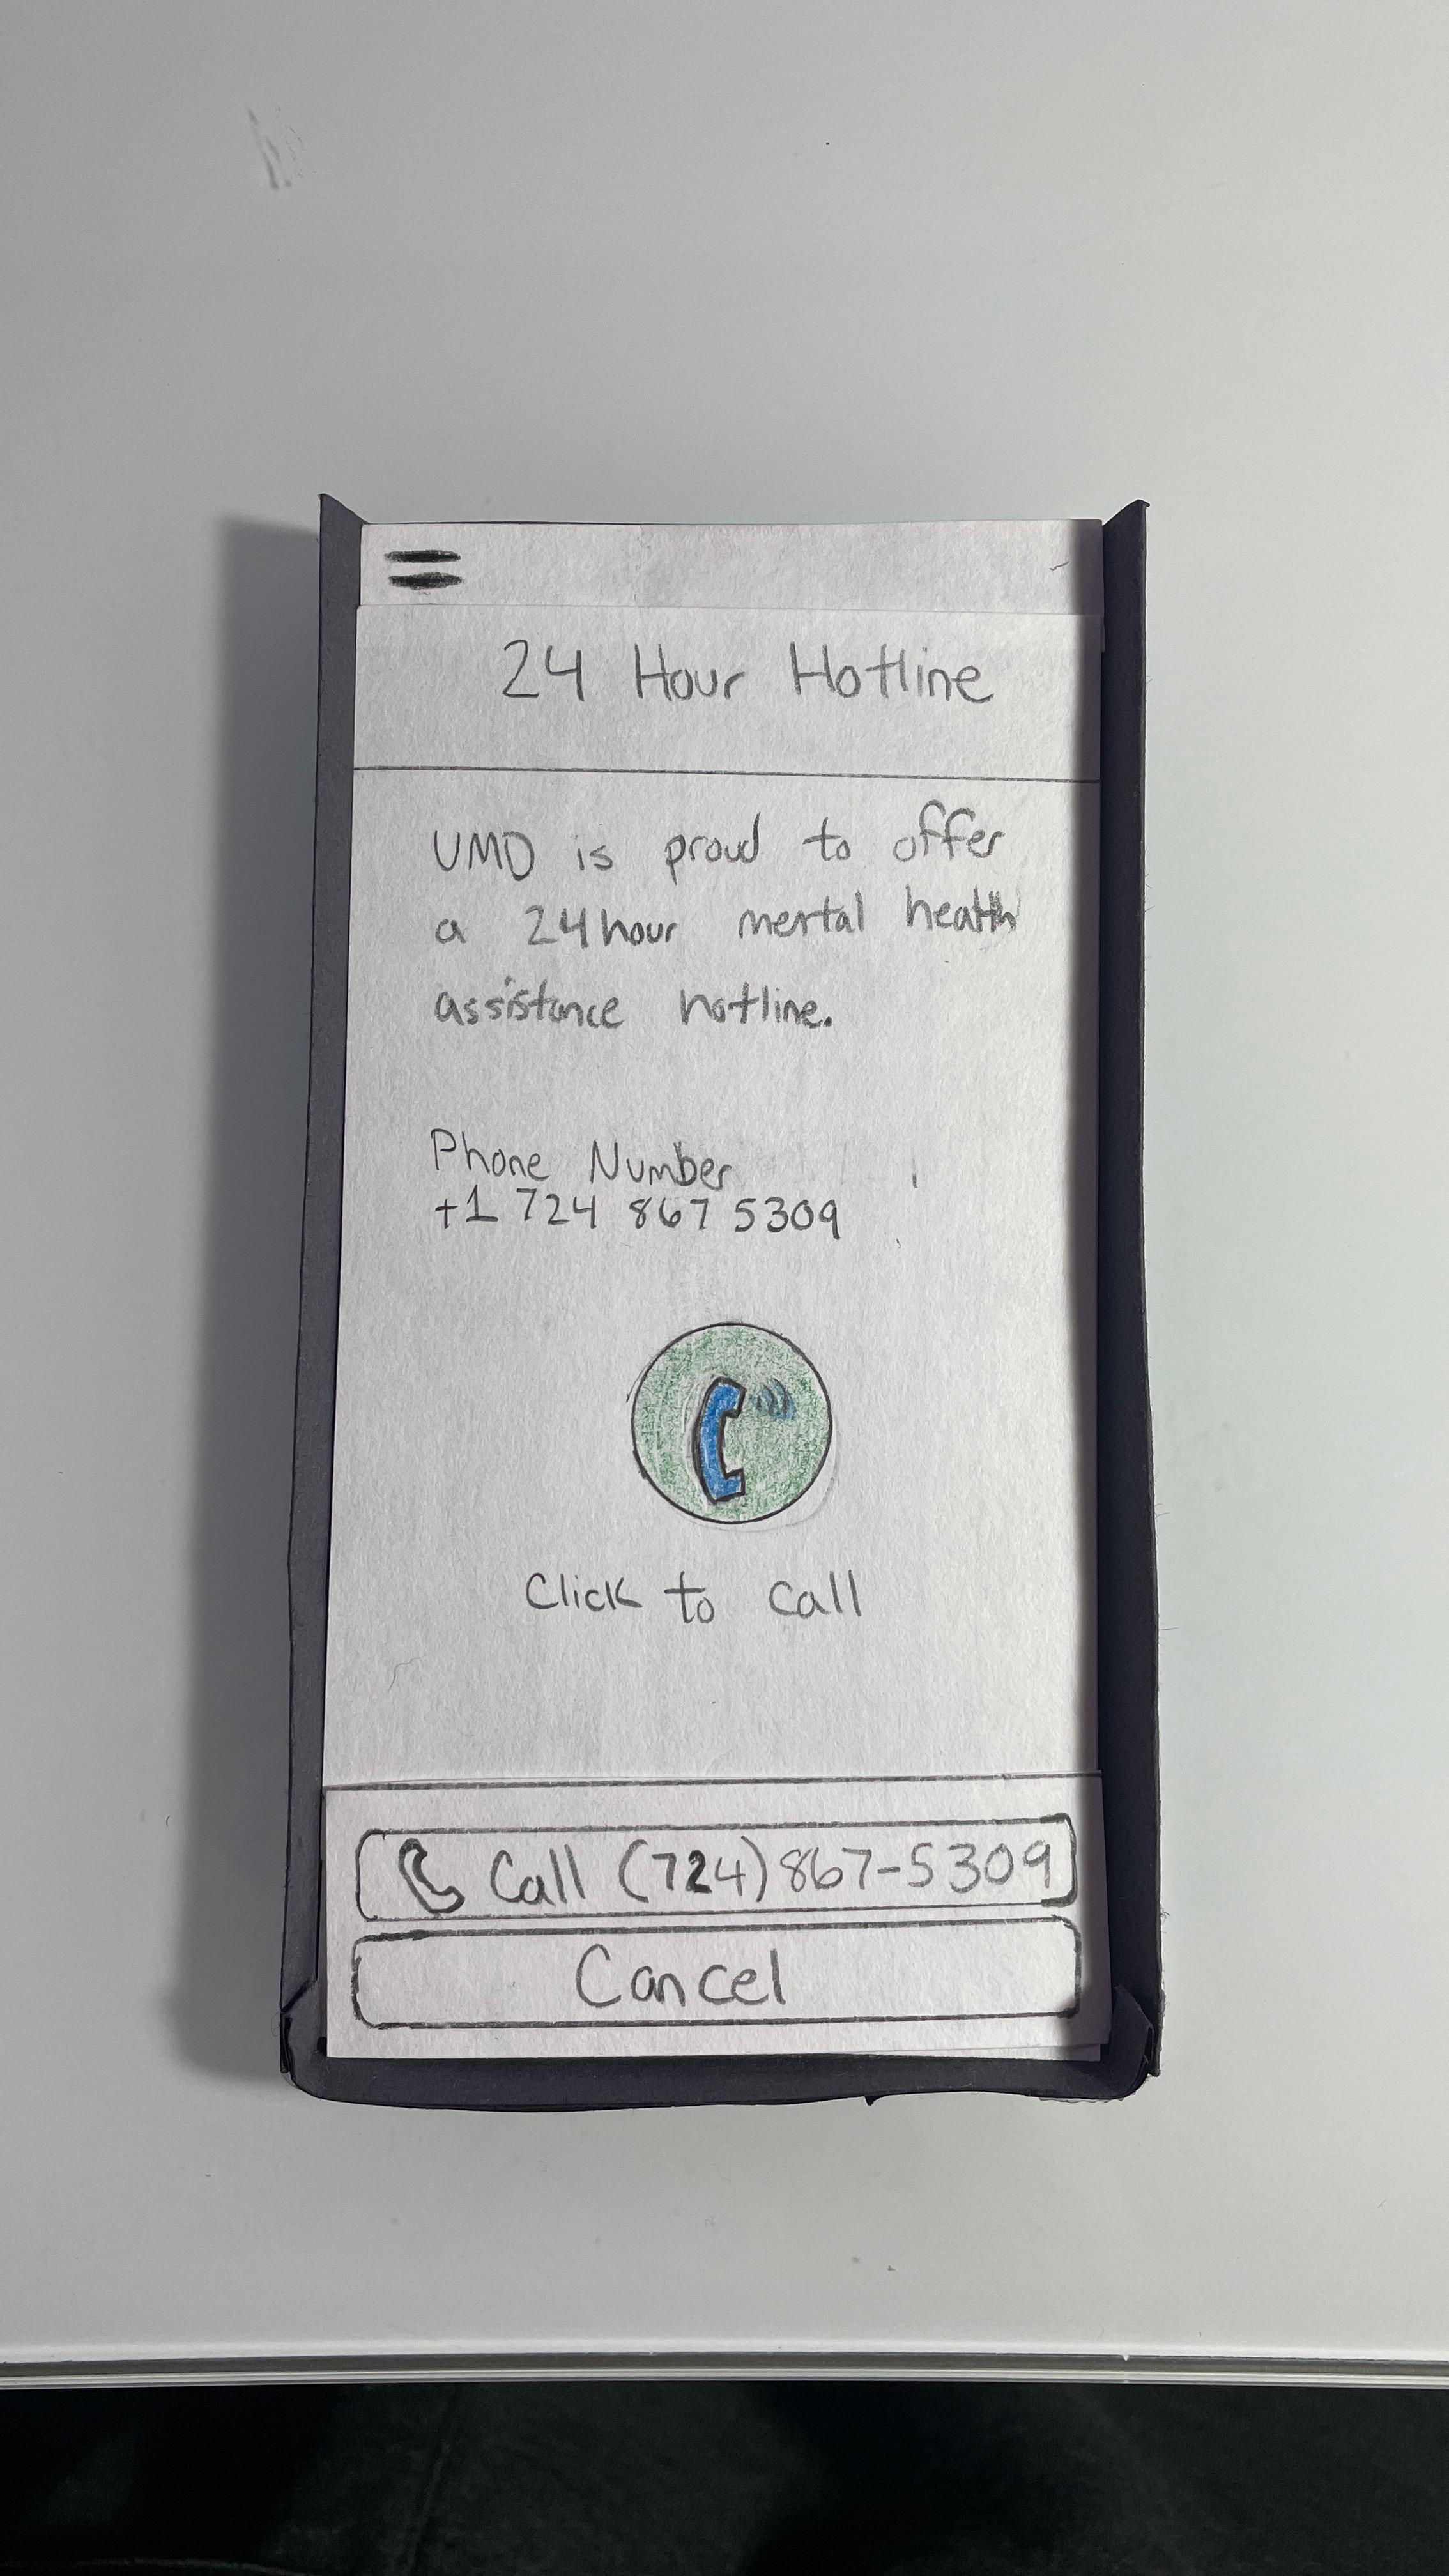 24 Hour Hotline
UMD is proud to offer
a 24 hour mental health
assistance hotline.
Phone Number
+1 724 867 5309
Click to call
Call (724) 867-5309
Cancel